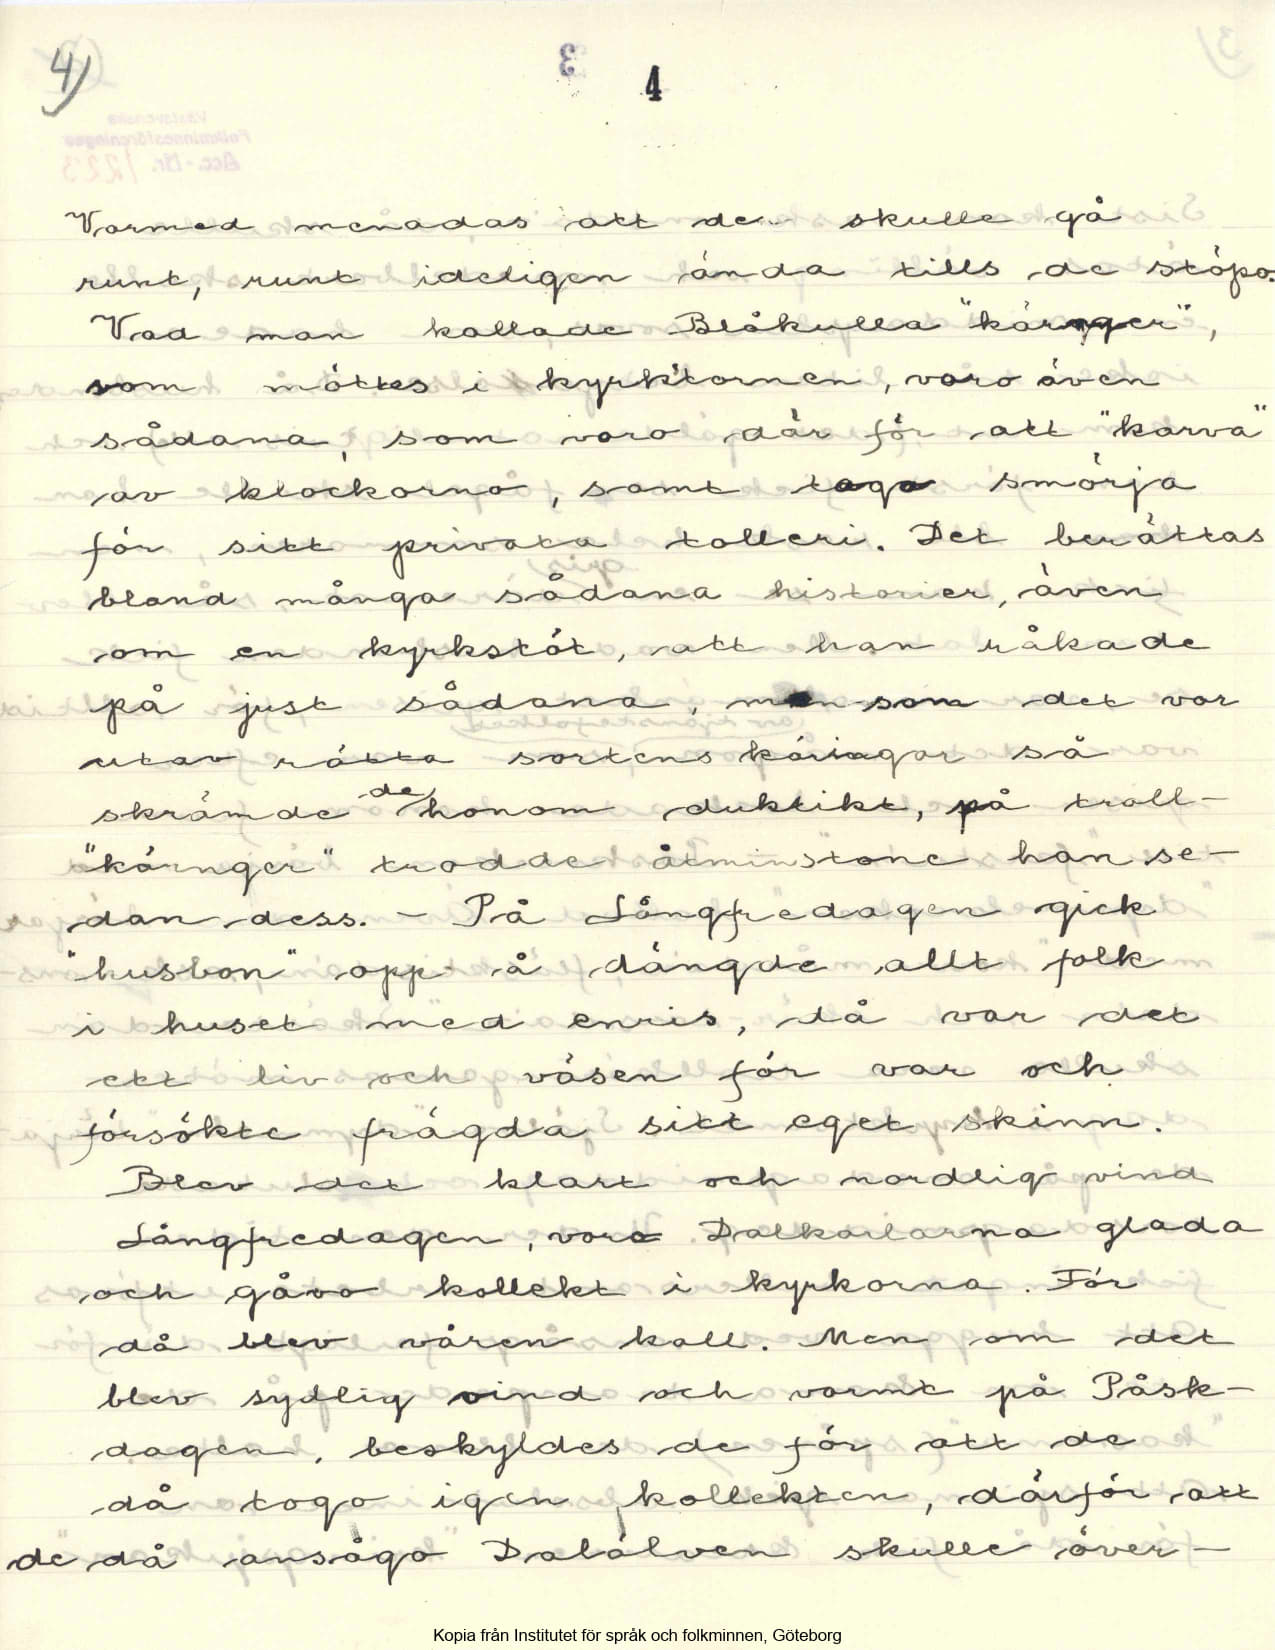 4)
4
Varmed menadas att de skulle gå
runt, runt ideligen ända tills de stöpo.
Vad man kallade Blåkulla "kärnger",
som möttes i kyrktornen, voro även
sådana, som voro där för att "karva"
av klockorna, samt taga smörja
för sitt privata tolleri. Det berättas
bland många sådana historier, även
om en kyrkstöt, att han råkade
på just sådana, men som det var
utav rätta sortens käringar så
skrämde de honom duktikt, på troll-
"kärnger" trodde åtminstone han se-
dan dess. - På Långfredagen gick
"husbon" opp å dängde allt folk
i huset med enris, då var det
ett liv och väsen för var och
försökte frägda sitt eget skinn.
Blev det klart och nordlig vind
Långfredagen, voro Dalkarlarna glada
och gåvo kollekt i kyrkorna. För
då blev våren kall. Men om det
blev sydlig vind och varmt på Påsk-
dagen, beskyldes de för att de
då togo igen kollekten, därför att
de då ansågo Dalälven skulle över-
Kopia från Institutet för språk och folkminnen, Göteborg